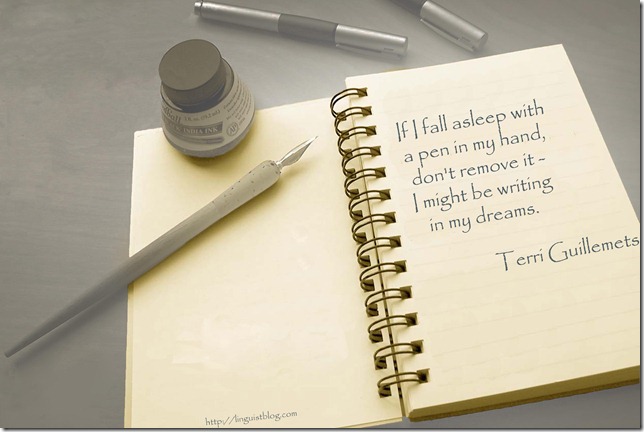 INDIA INK
If I fall asleep with
a pen in my hand,
don't remove it -
I might be writing
in my dreams.
Terri Guillemets
http://linguistblog.com